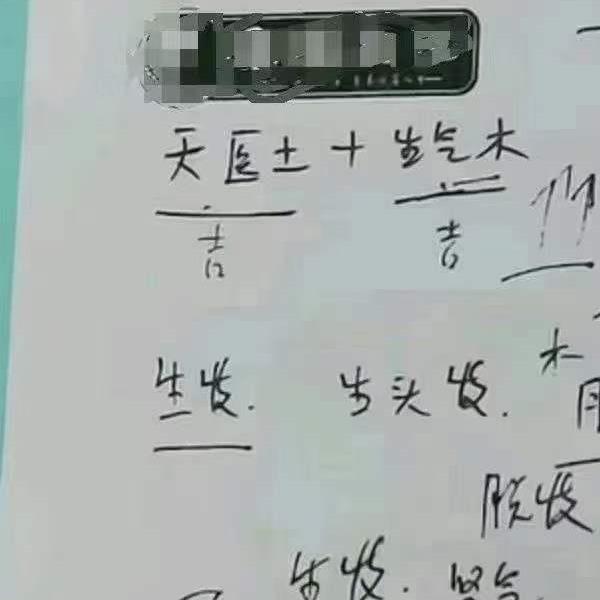 天医土＋生气木
吉 吉
生发. 生头发.
木
脱发
生发.